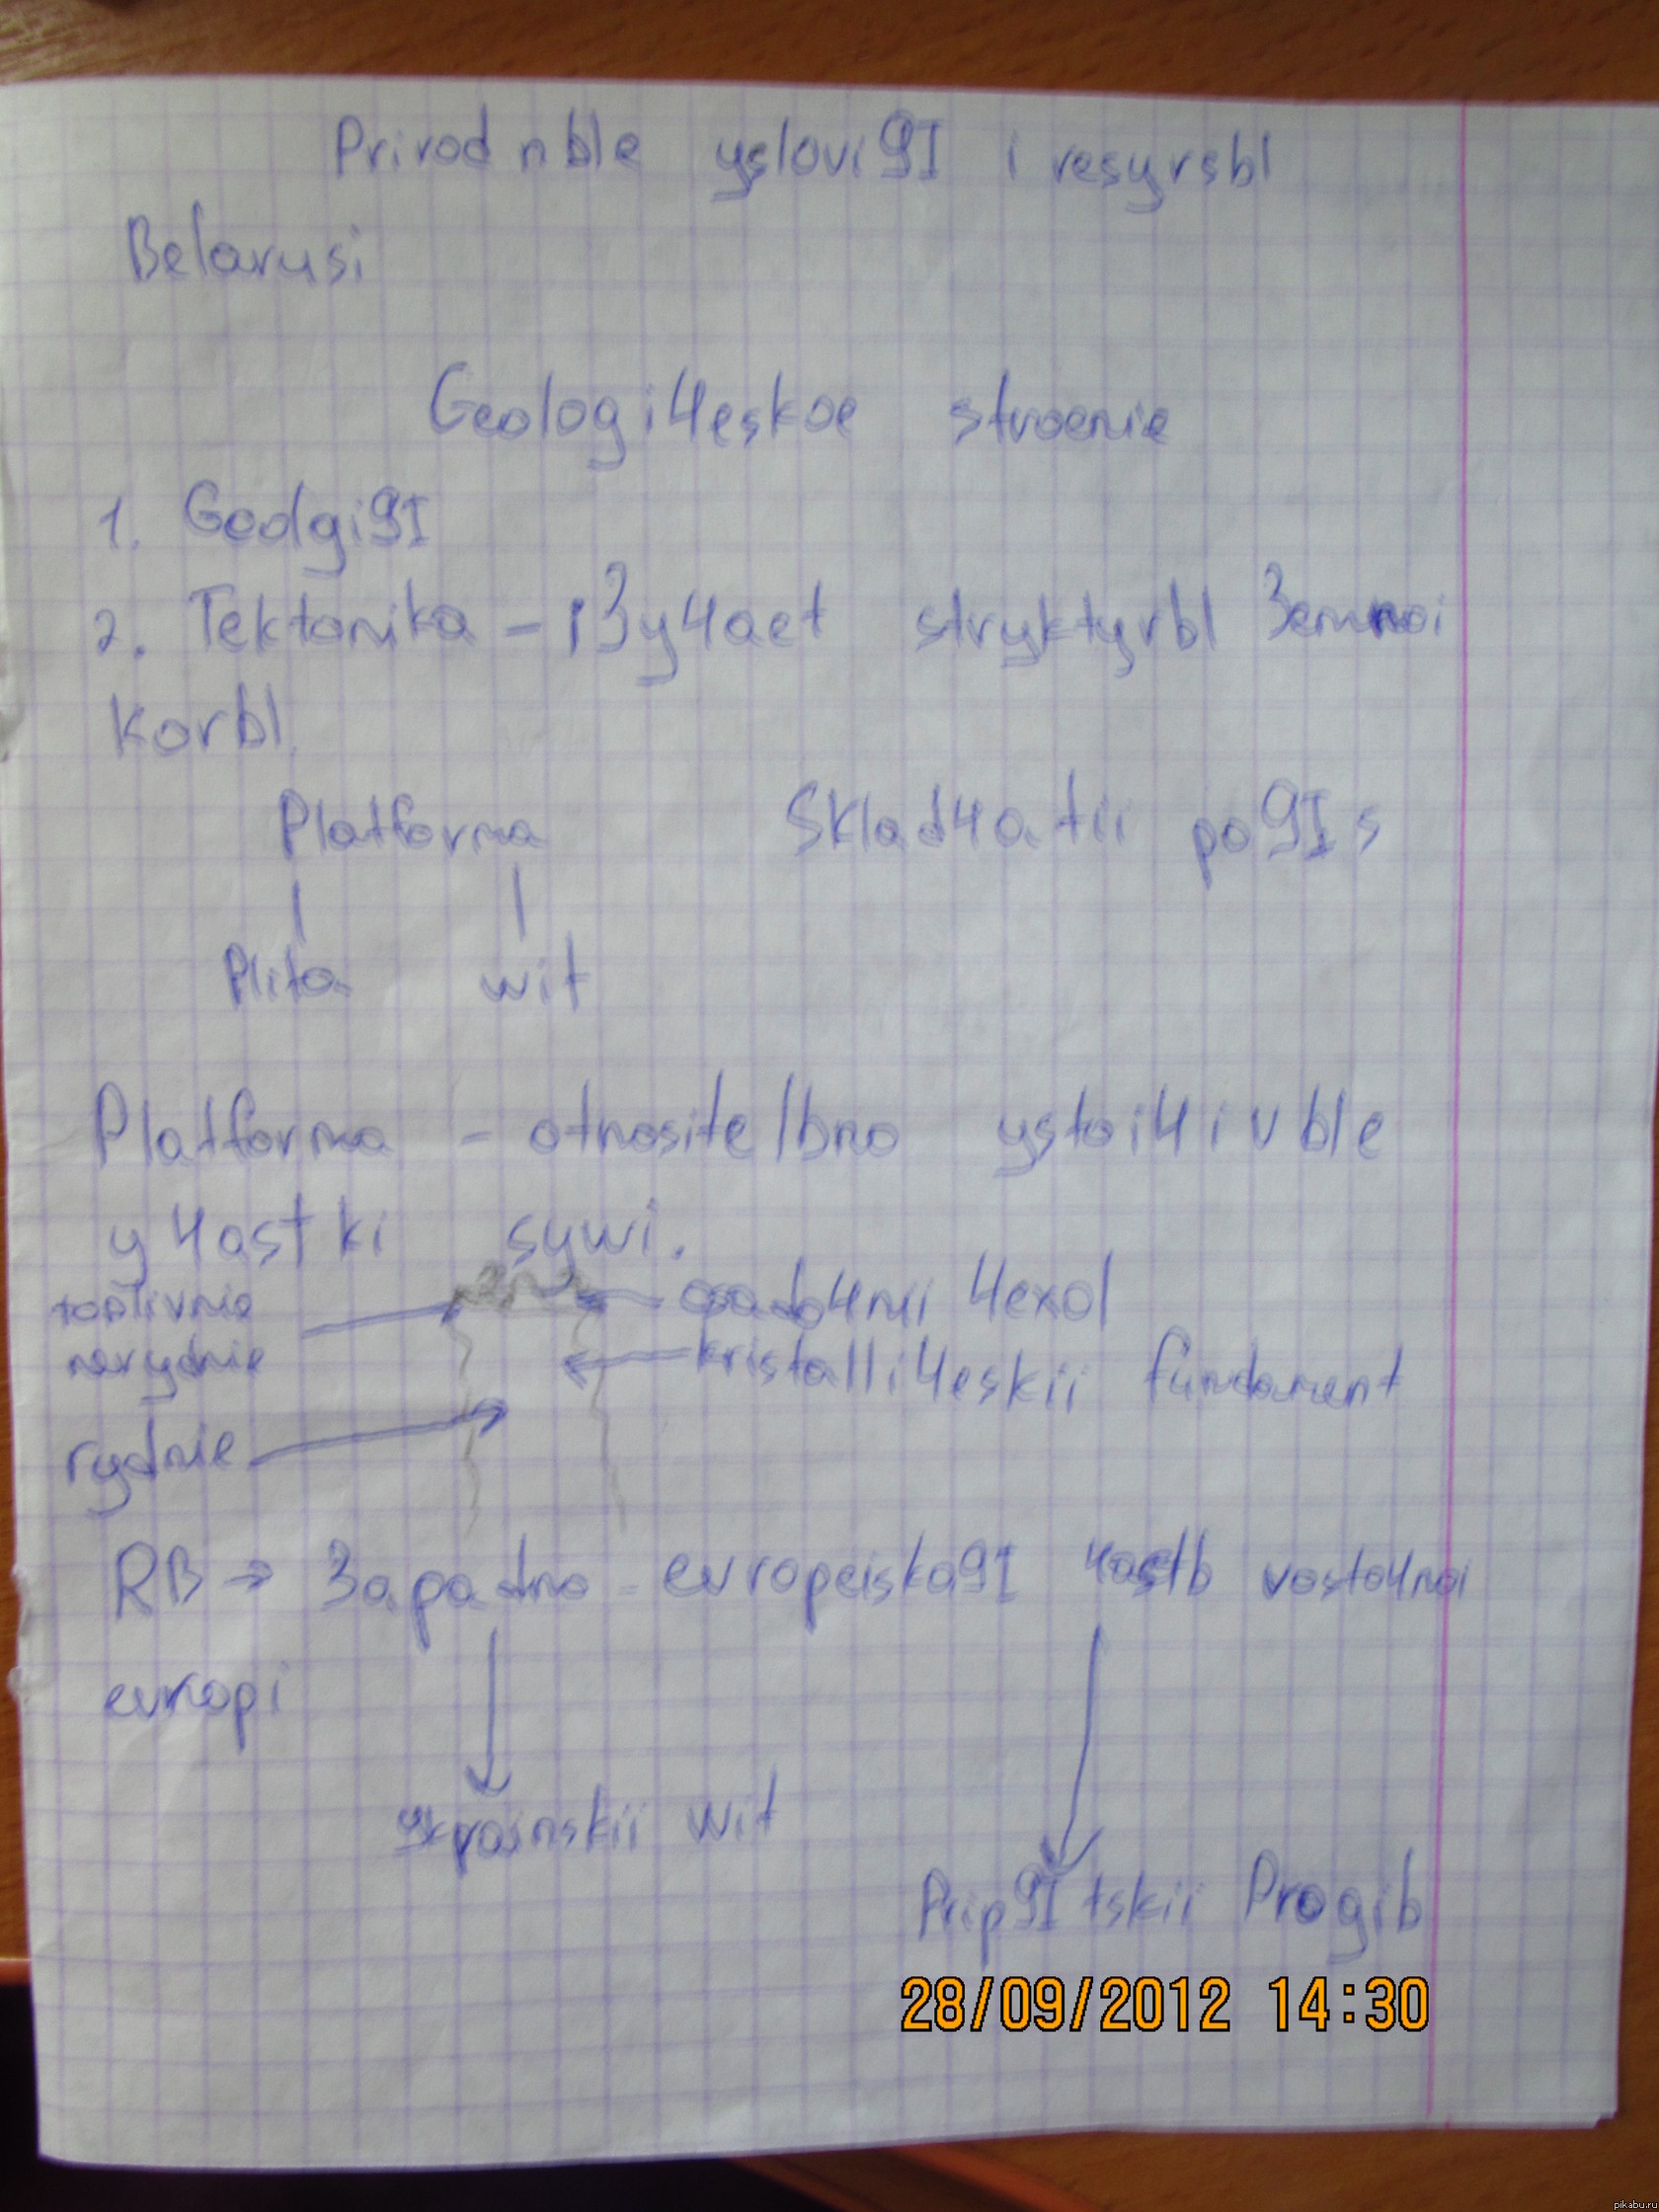 Prirodnble yslovi9I i resyrsbl
Belarusi
Geologi4eskoe stroenie
1. Geologi9I
2. Tektonika - i3y4aet stryktyrbl 3emnoi
korbl.
Platforma Sklad4atii po9Is
Plita wit
Platforma - otnositelbno ystoi4ivble
y4astki sywi.
toplivnie osado4nii 4exol
nerydnie kristalli4eskii fundament
rydnie
RB → 3apadno - evropeiska9I 4astb vosto4noi
evropi
ykrainskii wit
Prip9Itskii Progib
28/09/2012 14:30
pikabu.ru